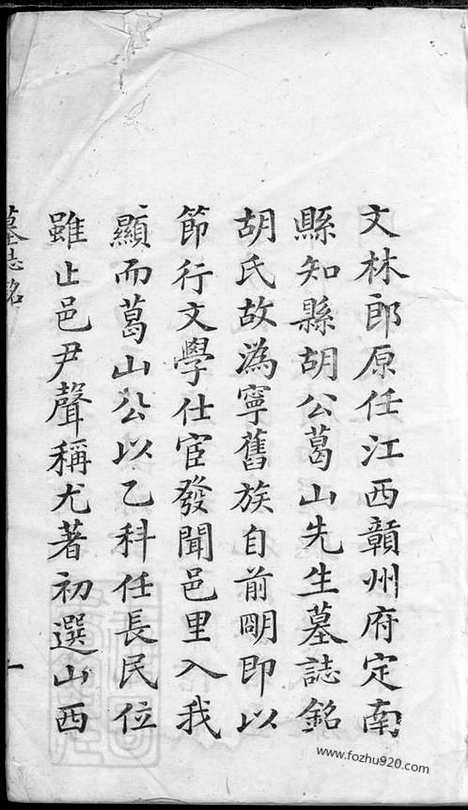 文林郎原任江西贛州府定南
縣知縣胡公葛山先生墓誌銘
胡氏故溈寧舊族自前明即以
節行文學仕宦發聞邑里入我
顯而葛山公以乙科任長民位
雖止邑尹聲稱尤著初選山西
墓誌銘
一
www.fozhu920.com